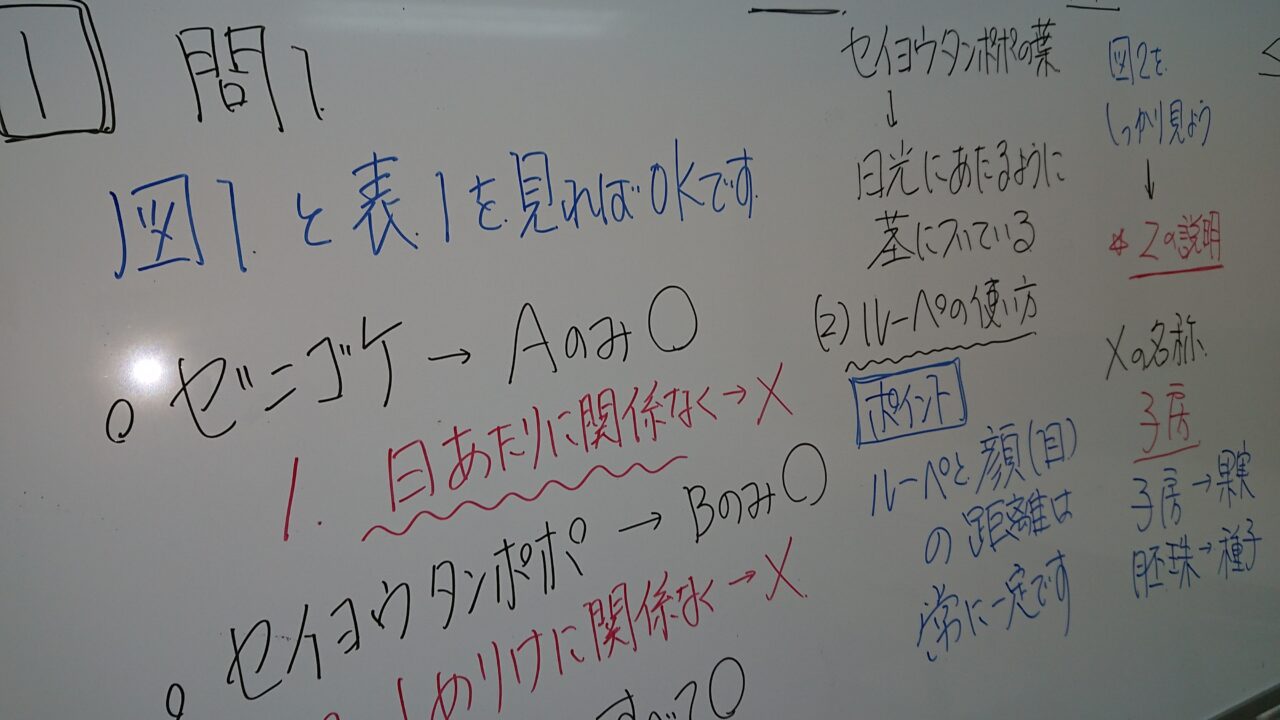 1 問1.
図1.と表.1を.見ればOKです.
○ ゼニゴケ → Aのみ○
1. 日あたりに関係なく→X
セイヨウタンポポ → Bのみ○
しめりけに関係なく→X
○
セイヨウタンポポの葉
↓
日光にあたるように
茎についている
(2) ルーペの使い方
ポイント
ルーペと顔(目)
の距離は
常に一定です
図2を
しっかり見よう
↓
* Zの説明
Xの名称
子房
子房→果実
胚珠→種子